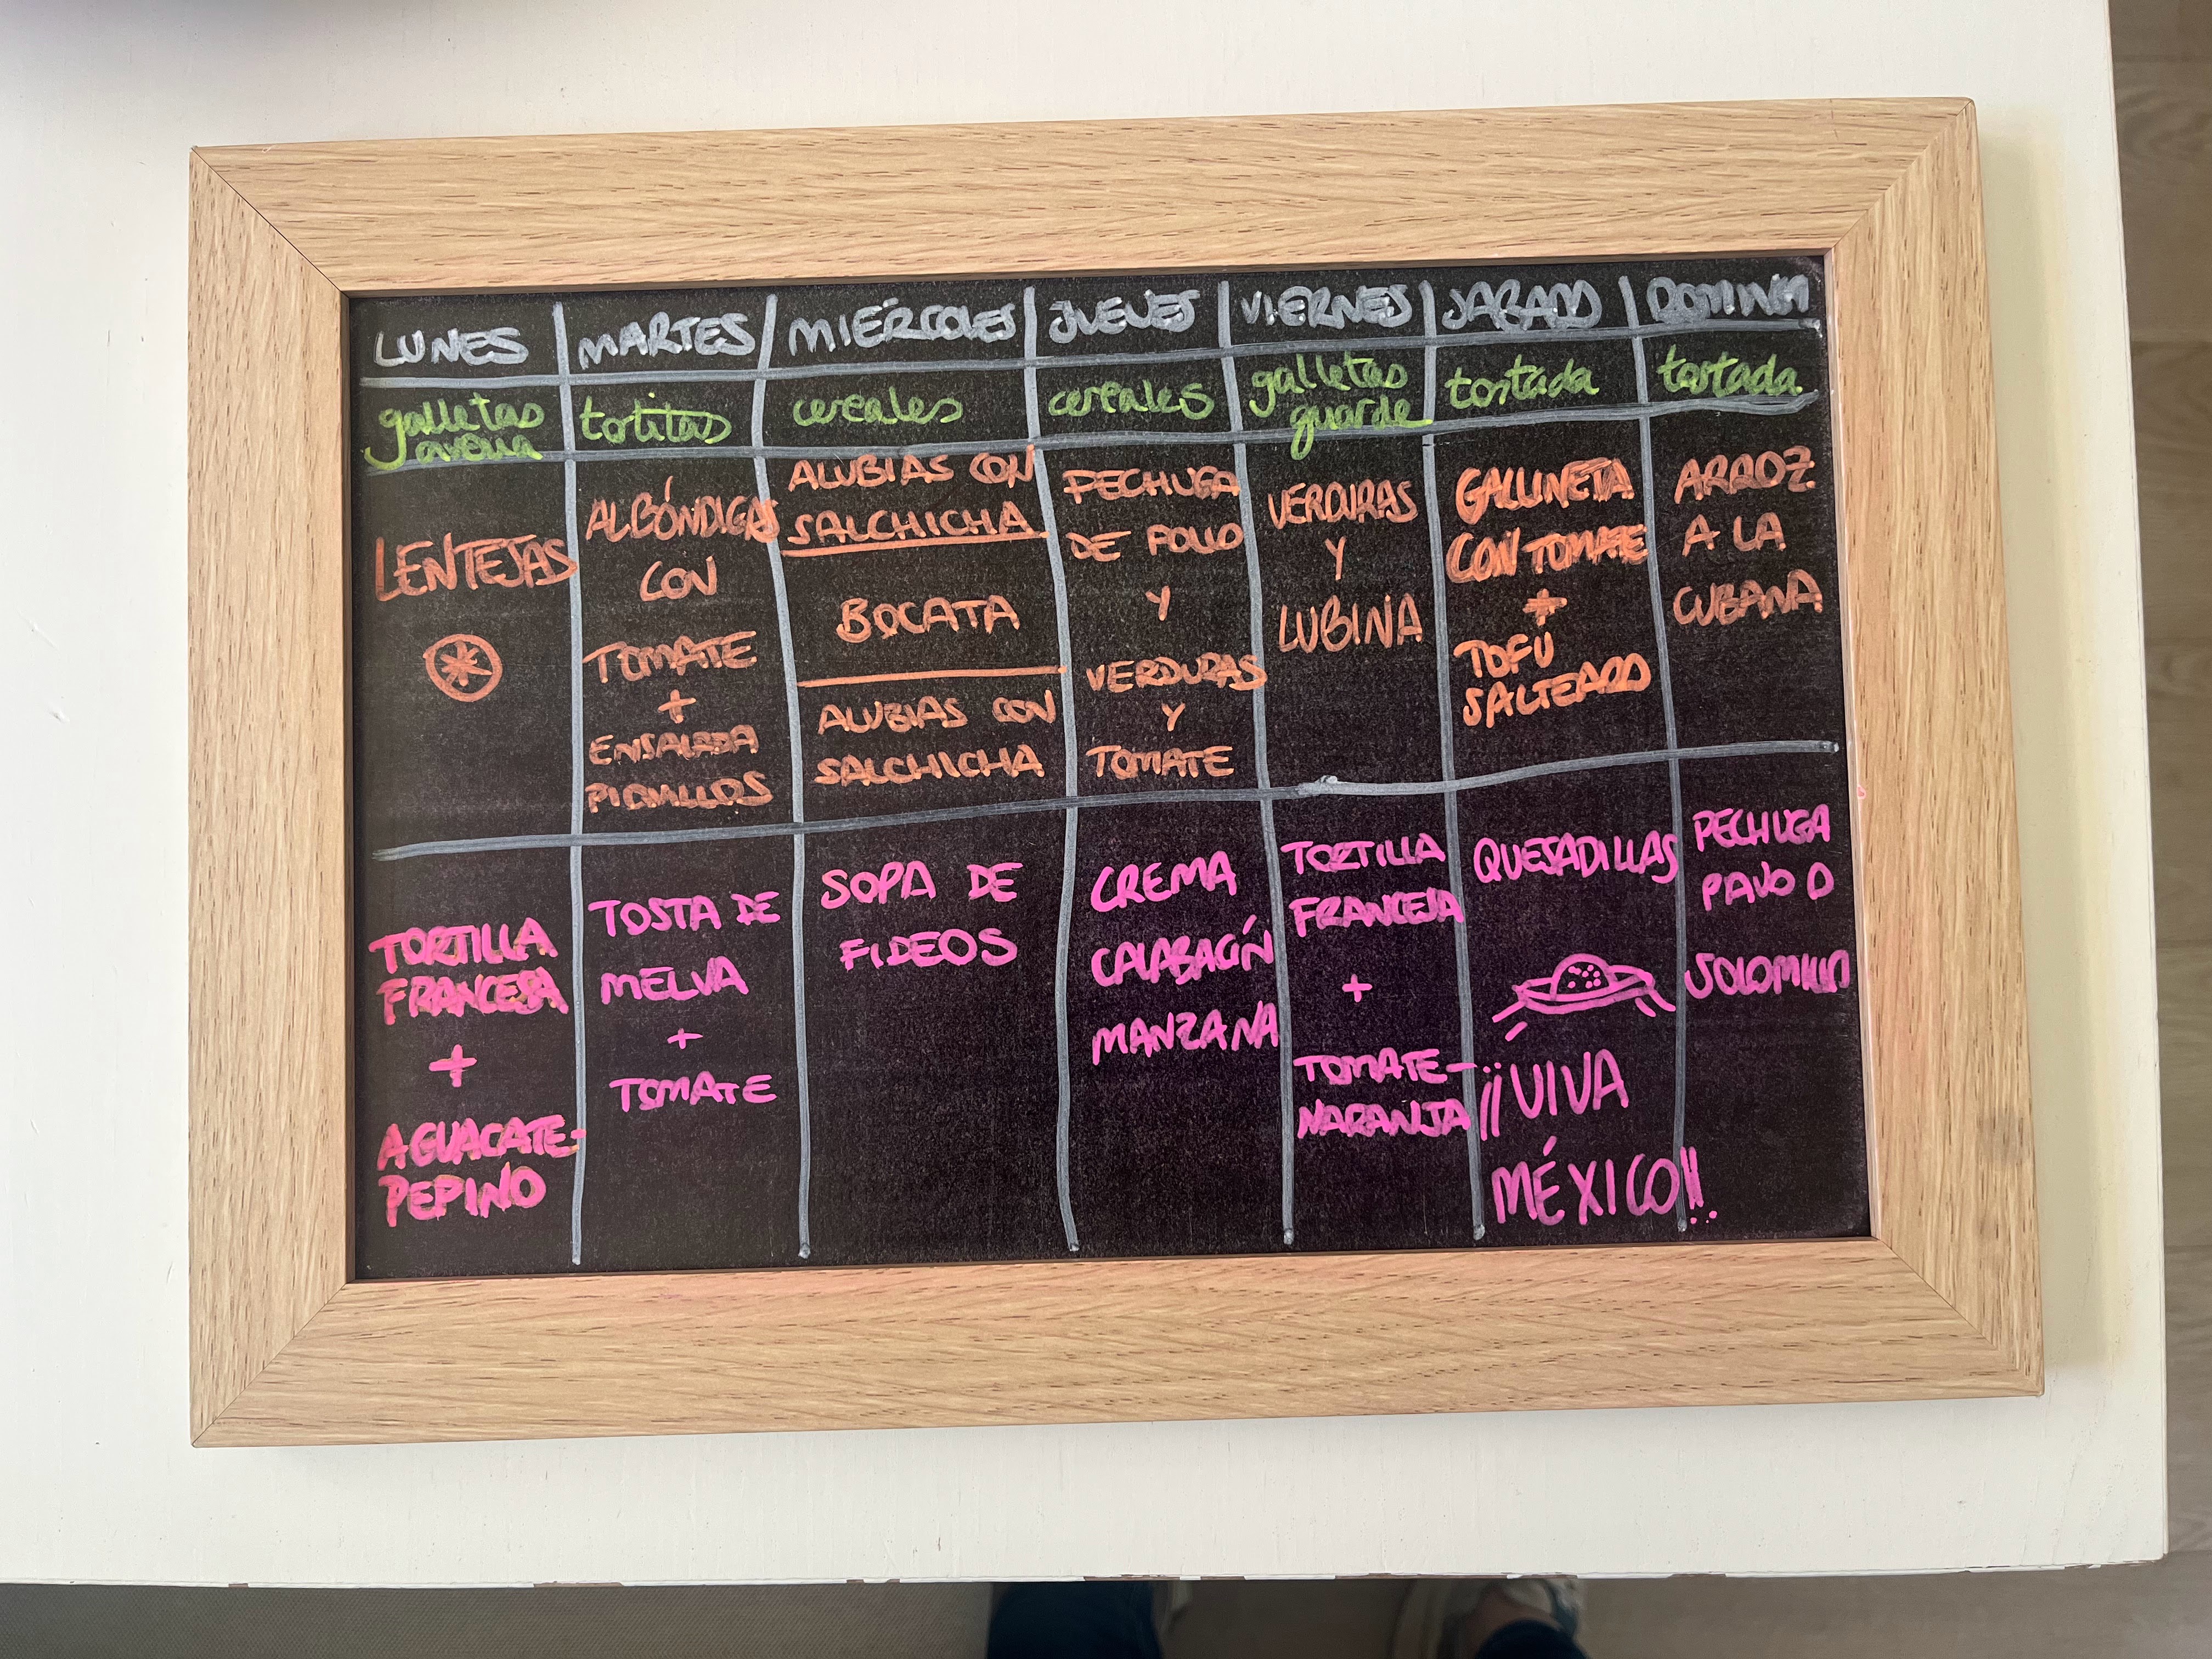 LUNES
MARTES
MIÉRCOLES
JUEVES
VIERNES
SABADO
DOMINGO
galletas
avena
tortitas
cereales
cereales
galletas
guarde
tostada
tostada
LENTEJAS
ALBÓNDIGAS
CON
TOMATE
+
ENSALADA
PIQUILLOS
ALUBIAS CON
SALCHICHA
BOCATA
ALUBIAS CON
SALCHICHA
PECHUGA
DE POLLO
Y
VERDURAS
Y
TOMATE
VERDURAS
Y
LUBINA
GALLINETA
CON TOMATE
+
TOFU
SALTEADO
ARROZ
A LA
CUBANA
TORTILLA
FRANCESA
+
AGUACATE-
PEPINO
TOSTA DE
MELVA
+
TOMATE
SOPA DE
FIDEOS
CREMA
CALABACÍN
MANZANA
TORTILLA
FRANCESA
+
TOMATE-
NARANJA
QUESADILLAS
¡¡VIVA
MÉXICO!!
PECHUGA
PAVO O
SOLOMILLO